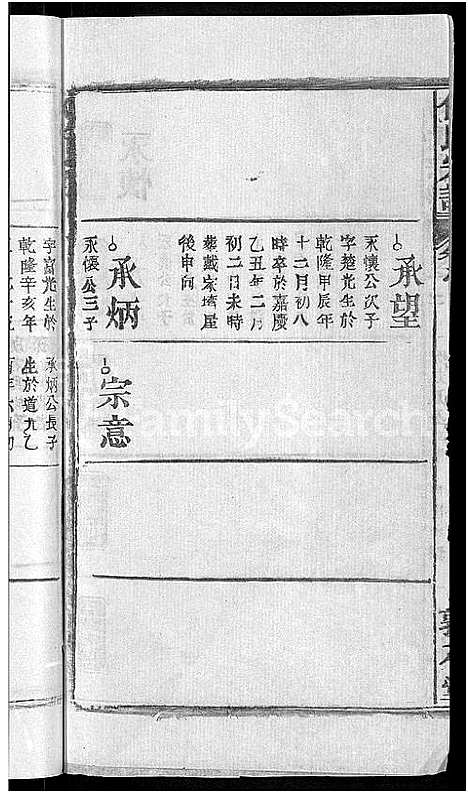 承望
永懷公次子
字楚光生於
乾隆甲辰年
十二月初八
時卒於嘉慶
乙丑年二月
初二日未時
葬戴家塆屋
後申向
承炳
永懷公三子
宗意
字富光生於
乾隆辛亥年
承炳公長子
生於道光乙
FamilySearch